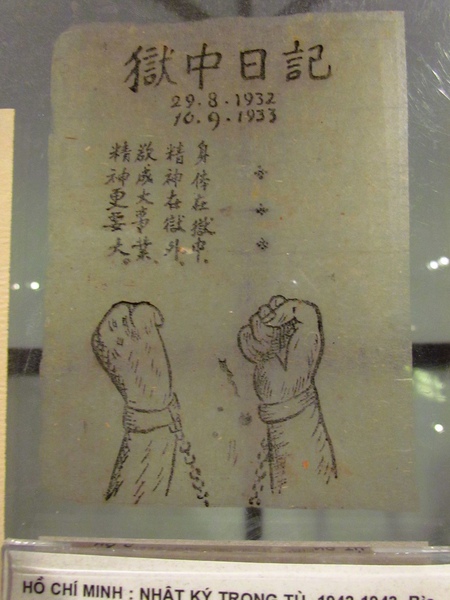 獄中日記
29.8.1932
10.9.1933
身体在獄中、
精神在獄外、
欲成大事業、
精神更要大。
HỒ CHÍ MINH : NHẬT KÝ TRONG TÙ, 1942-1943.